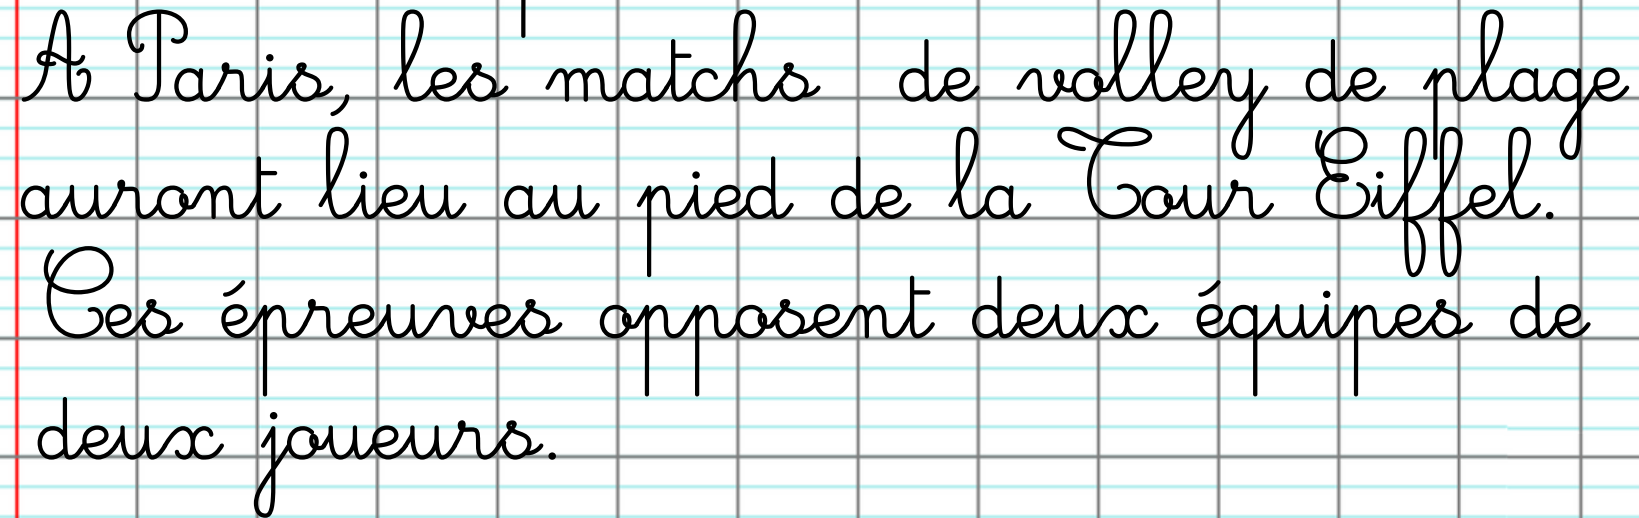 A Paris, les matchs de volley de plage
auront lieu au pied de la Tour Eiffel.
Ces épreuves opposent deux équipes de
deux joueurs.